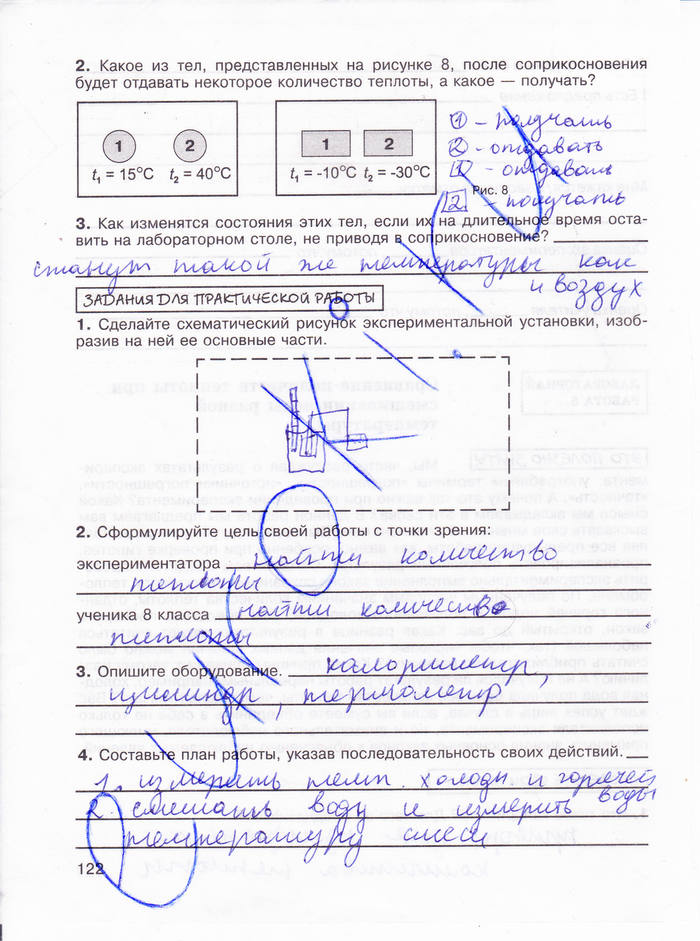 2. Какое из тел, представленных на рисунке 8, после соприкосновения
будет отдавать некоторое количество теплоты, а какое — получать?
1 2
t₁ = 15°C t₂ = 40°C
1 2
t₁ = -10°C t₂ = -30°C
① - получать
② - отдавать
1 - отдавать
Рис. 8
2 - получать
3. Как изменятся состояния этих тел, если их на длительное время оста-
вить на лабораторном столе, не приводя в соприкосновение?
станут такой же температуры как
и воздух
ЗАДАНИЯ ДЛЯ ПРАКТИЧЕСКОЙ РАБОТЫ
1. Сделайте схематический рисунок экспериментальной установки, изоб-
разив на ней ее основные части.
2. Сформулируйте цель своей работы с точки зрения:
экспериментатора найти количество
теплоты
ученика 8 класса найти количество
теплоты
3. Опишите оборудование. калориметр,
цилиндр, термометр
4. Составьте план работы, указав последовательность своих действий.
1. измерить темп. холодн. и горячей
воды
2. смешать воду и измерить
температуру смеси
122